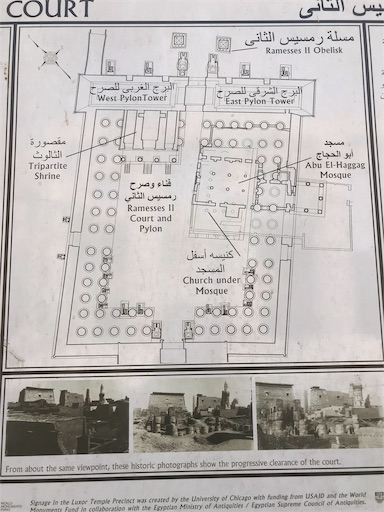 COURT
سيس الثانى
مسلة رمسيس الثانى
Ramesses II Obelisk
البرج الغربي للصرح
West Pylon Tower
البرج الشرقي للصرح
East Pylon Tower
مقصورة
الثالوث
Tripartite
Shrine
مسجد
أبو الحجاج
Abu El-Haggag
Mosque
فناء وصرح
رمسيس الثانى
Ramesses II
Court and
Pylon
كنيسه أسفل
المسجد
Church under
Mosque
From about the same viewpoint, these historic photographs show the progressive clearance of the court.
Signage in the Luxor Temple Precinct was created by the University of Chicago with funding from USAID and the World
Monuments Fund in collaboration with the Egyptian Ministry of Antiquities / Egyptian Supreme Council of Antiquities.